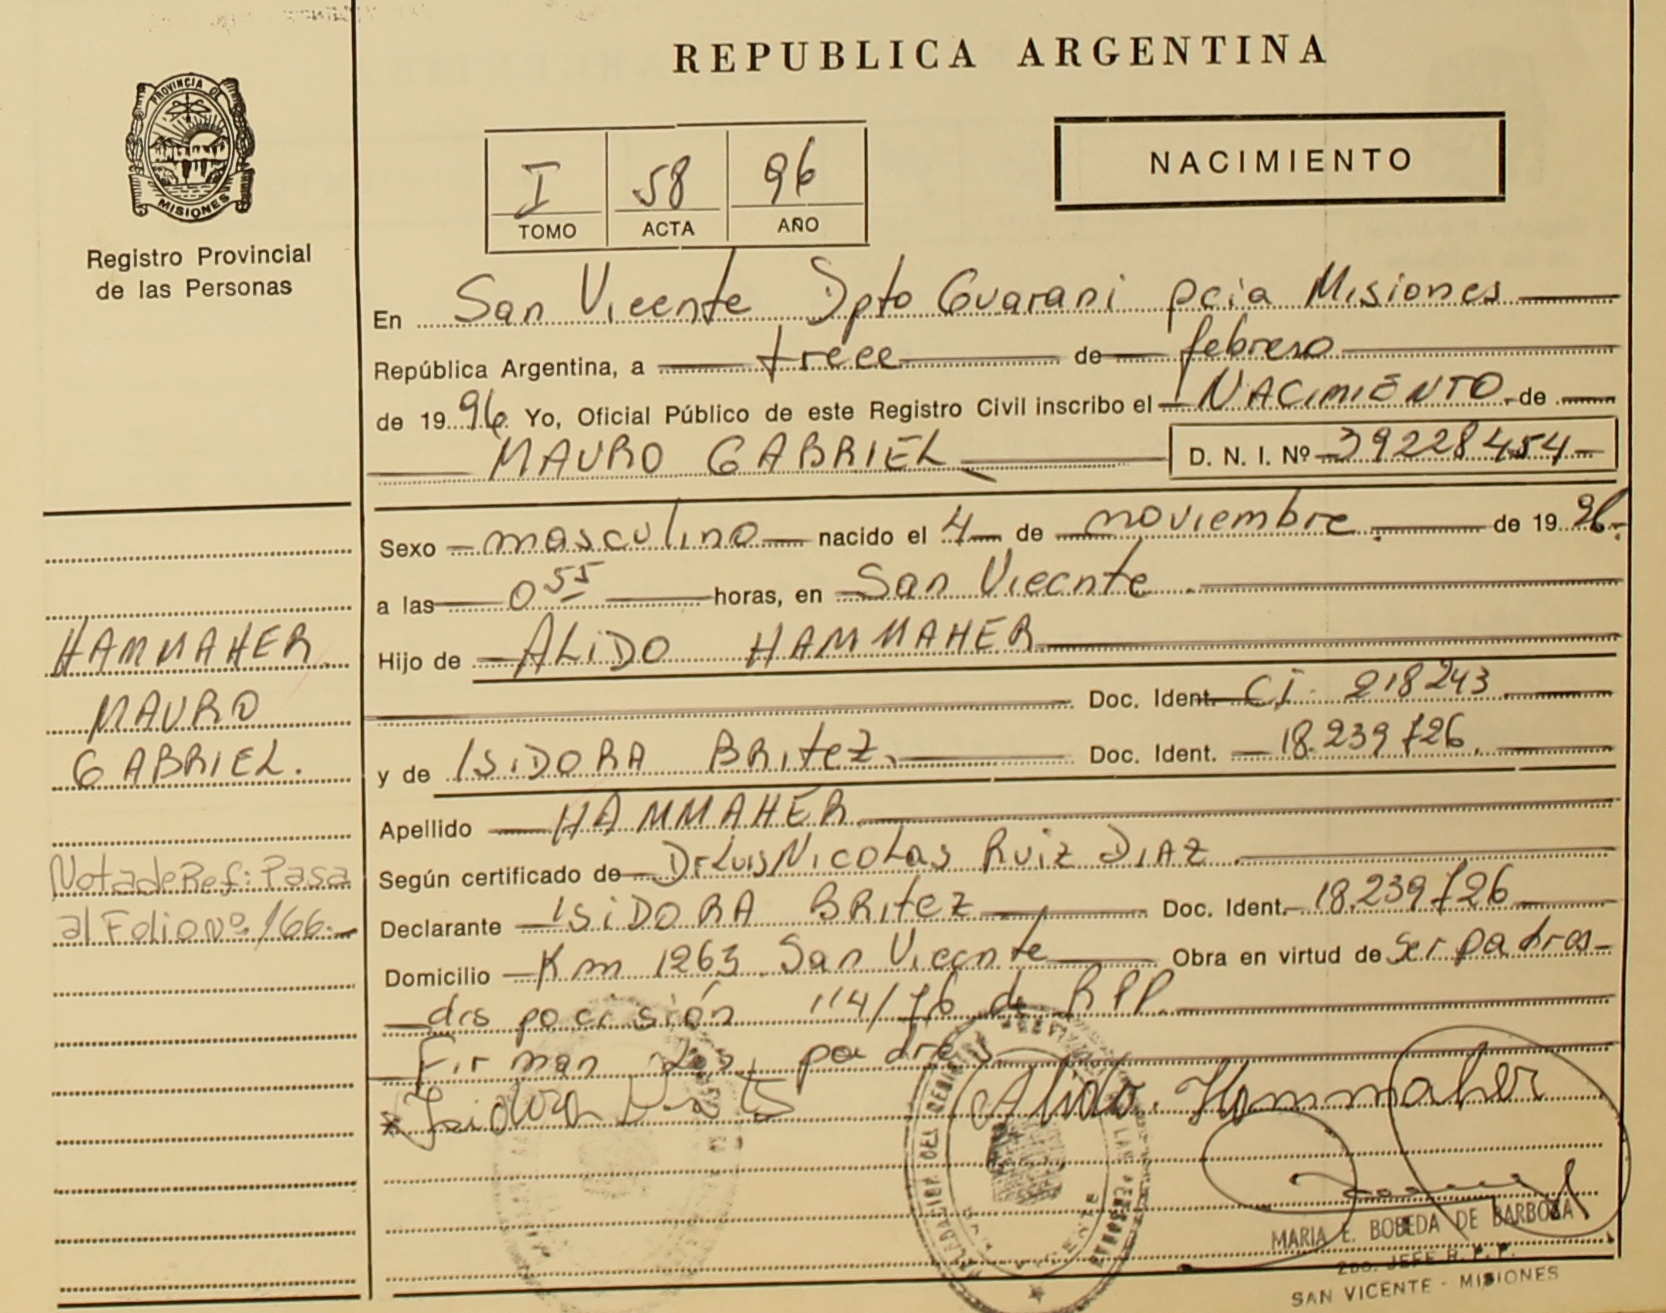 REPUBLICA ARGENTINA
PROVINCIA DE
MISIONES
Registro Provincial
de las Personas
I 58 96
TOMO ACTA AÑO
NACIMIENTO
En San Vicente Dpto Guarani pcia Misiones
República Argentina, a trece de febrero
de 19 96 Yo, Oficial Público de este Registro Civil inscribo el NACIMIENTO de
MAURO GABRIEL D. N. I. Nº 39228454
Sexo masculino nacido el 4 de noviembre de 19
a las 0 55 horas, en San Vicente
Hijo de ALIDO HAMMAHER
Doc. Ident. CI 218243
y de ISIDORA BRITEZ Doc. Ident. 18.239726
Apellido HAMMAHER
Según certificado de Dr Luis NICOLAS RUIZ DIAZ
Declarante ISIDORA BRITEZ Doc. Ident. 18.239726
Domicilio Km 1263 San Vicente Obra en virtud de ser padres
disposición 114/76 d RPP.
Firman los padres
Isidora
Alido Hammaher
HAMMAHER
MAURO
GABRIEL.
Nota de Ref: Pasa
al Folio Nº 166
MARIA E. BOBEDA DE BARBOSA
2DO. JEFE R. P. P.
SAN VICENTE - MISIONES